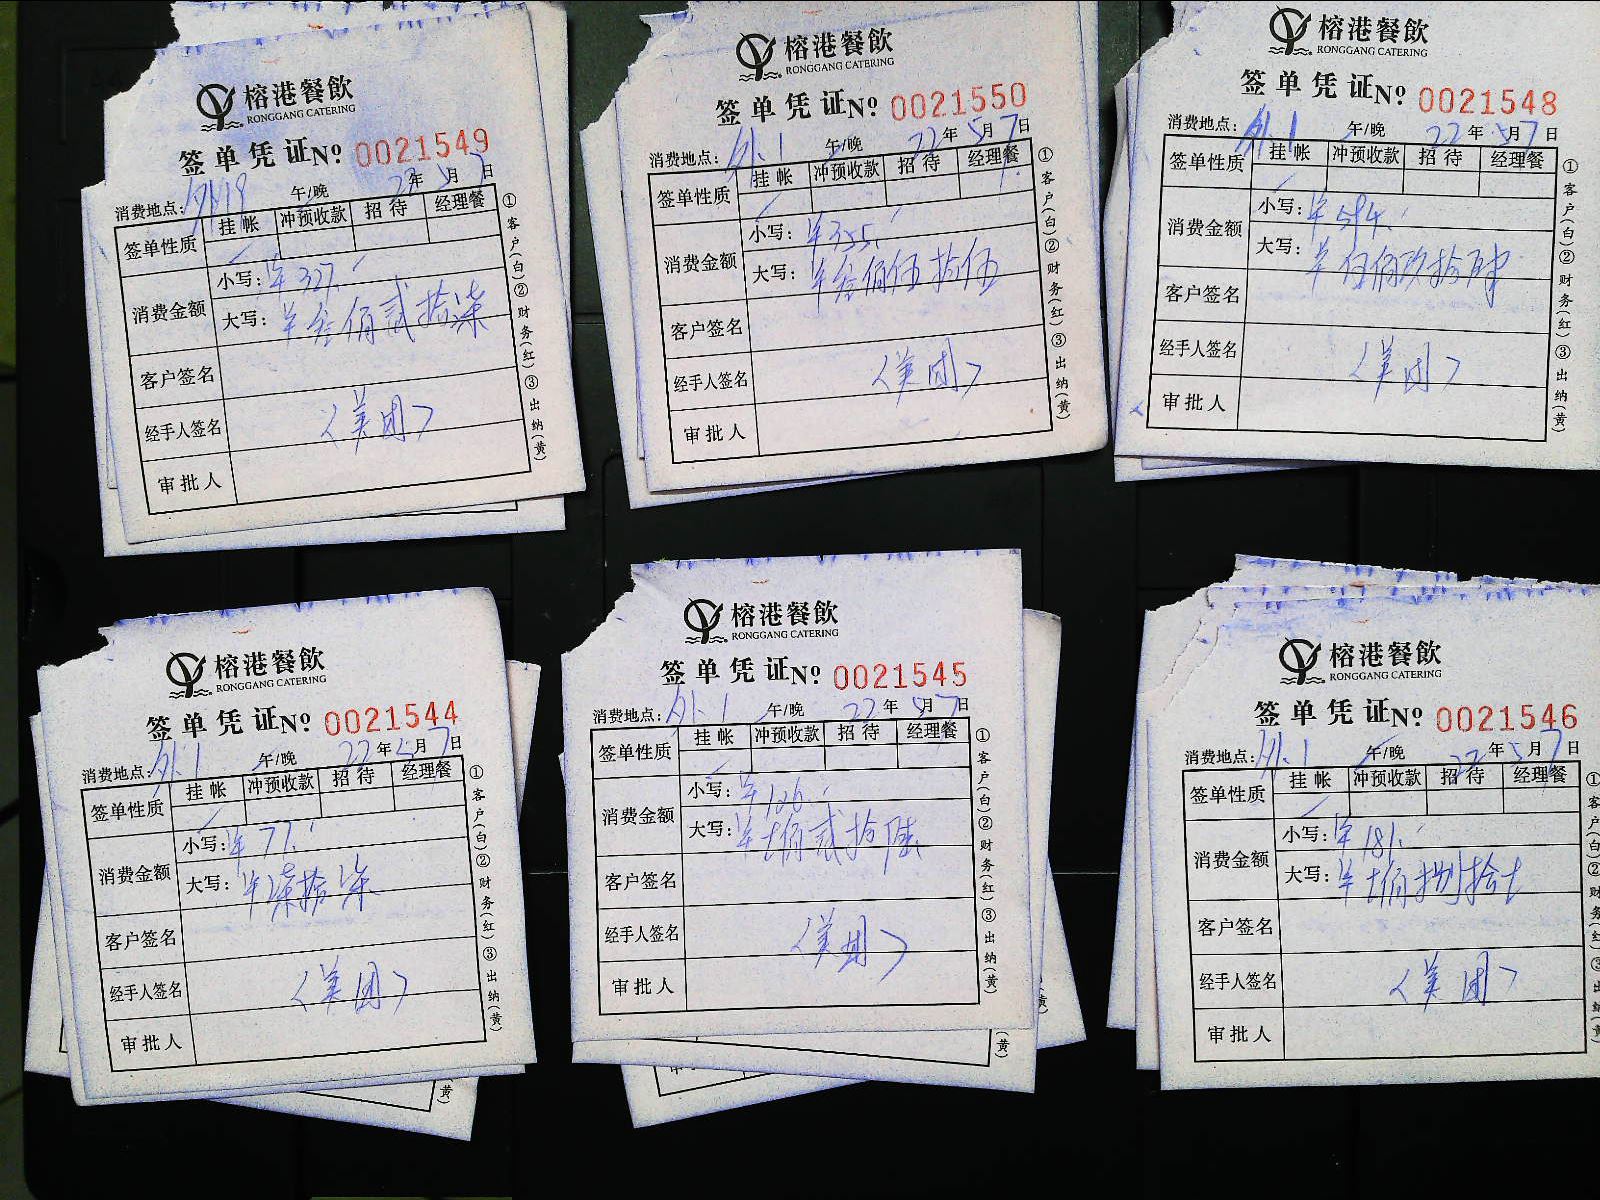 榕港餐飲
RONGGANG CATERING
签单凭证№ 0021549
消费地点： 午/晚 22年5月7日
签单性质 挂帐 冲预收款 招待 经理餐
消费金额 小写：¥327.
大写：¥叁佰贰拾柒
客户签名
经手人签名 〈美团〉
审批人
①客户(白)②财务(红)③出纳(黄)
榕港餐飲
RONGGANG CATERING
签单凭证№ 0021550
消费地点：外.1 午/晚 22年5月7日
签单性质 挂帐 冲预收款 招待 经理餐
消费金额 小写：¥355.
大写：¥叁佰伍拾伍
客户签名
经手人签名 〈美团〉
审批人
①客户(白)②财务(红)③出纳(黄)
榕港餐飲
RONGGANG CATERING
签单凭证№ 0021548
消费地点：外.1 午/晚 22年5月7日
签单性质 挂帐 冲预收款 招待 经理餐
消费金额 小写：¥594.
大写：¥伍佰玖拾肆
客户签名
经手人签名 〈美团〉
审批人
①客户(白)②财务(红)③出纳(黄)
榕港餐飲
RONGGANG CATERING
签单凭证№ 0021544
消费地点：外.1 午/晚 22年5月7日
签单性质 挂帐 冲预收款 招待 经理餐
消费金额 小写：¥77.
大写：¥柒拾柒
客户签名
经手人签名 〈美团〉
审批人
①客户(白)②财务(红)③出纳(黄)
(黄)
榕港餐飲
RONGGANG CATERING
签单凭证№ 0021545
消费地点：外.1 午/晚 22年5月7日
签单性质 挂帐 冲预收款 招待 经理餐
消费金额 小写：¥126.
大写：¥士佰贰拾陆
客户签名
经手人签名 〈美团〉
审批人
①客户(白)②财务(红)③出纳(黄)
(黄)
(黄)
榕港餐飲
RONGGANG CATERING
签单凭证№ 0021546
消费地点：外.1 午/晚 22年5月7日
签单性质 挂帐 冲预收款 招待 经理餐
消费金额 小写：¥181.
大写：¥士佰捌拾士
客户签名
经手人签名 〈美团〉
审批人
①客户(白)②财务(红)③出纳(黄)